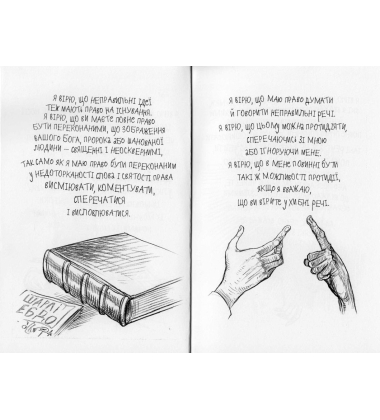 Я ВІРЮ, ЩО НЕПРАВИЛЬНІ ІДЕЇ
ТЕЖ МАЮТЬ ПРАВО НА ІСНУВАННЯ.
Я ВІРЮ, ЩО ВИ МАЄТЕ ПОВНЕ ПРАВО
БУТИ ПЕРЕКОНАНИМИ, ЩО ЗОБРАЖЕННЯ
ВАШОГО БОГА, ПРОРОКА АБО ШАНОВАНОЇ
ЛЮДИНИ – СВЯЩЕННІ І НЕОСКВЕРНИМІ,
ТАК САМО ЯК Я МАЮ ПРАВО БУТИ ПЕРЕКОНАНИМ
У НЕДОТОРКАНОСТІ СЛОВА І СВЯТОСТІ ПРАВА
ВИСМІЮВАТИ, КОМЕНТУВАТИ,
СПЕРЕЧАТИСЯ
І ВИСЛОВЛЮВАТИСЯ.
ШАРЛІ
ЕБДО
Я ВІРЮ, ЩО МАЮ ПРАВО ДУМАТИ
Й ГОВОРИТИ НЕПРАВИЛЬНІ РЕЧІ.
Я ВІРЮ, ЩО ЦЬОМУ МОЖНА ПРОТИДІЯТИ,
СПЕРЕЧАЮЧИСЬ ЗІ МНОЮ
АБО ІГНОРУЮЧИ МЕНЕ.
Я ВІРЮ, ЩО В МЕНЕ ПОВИННІ БУТИ
ТАКІ Ж МОЖЛИВОСТІ ПРОТИДІЇ,
ЯКЩО Я ВВАЖАЮ,
ЩО ВИ ВІРИТЕ У ХИБНІ РЕЧІ.